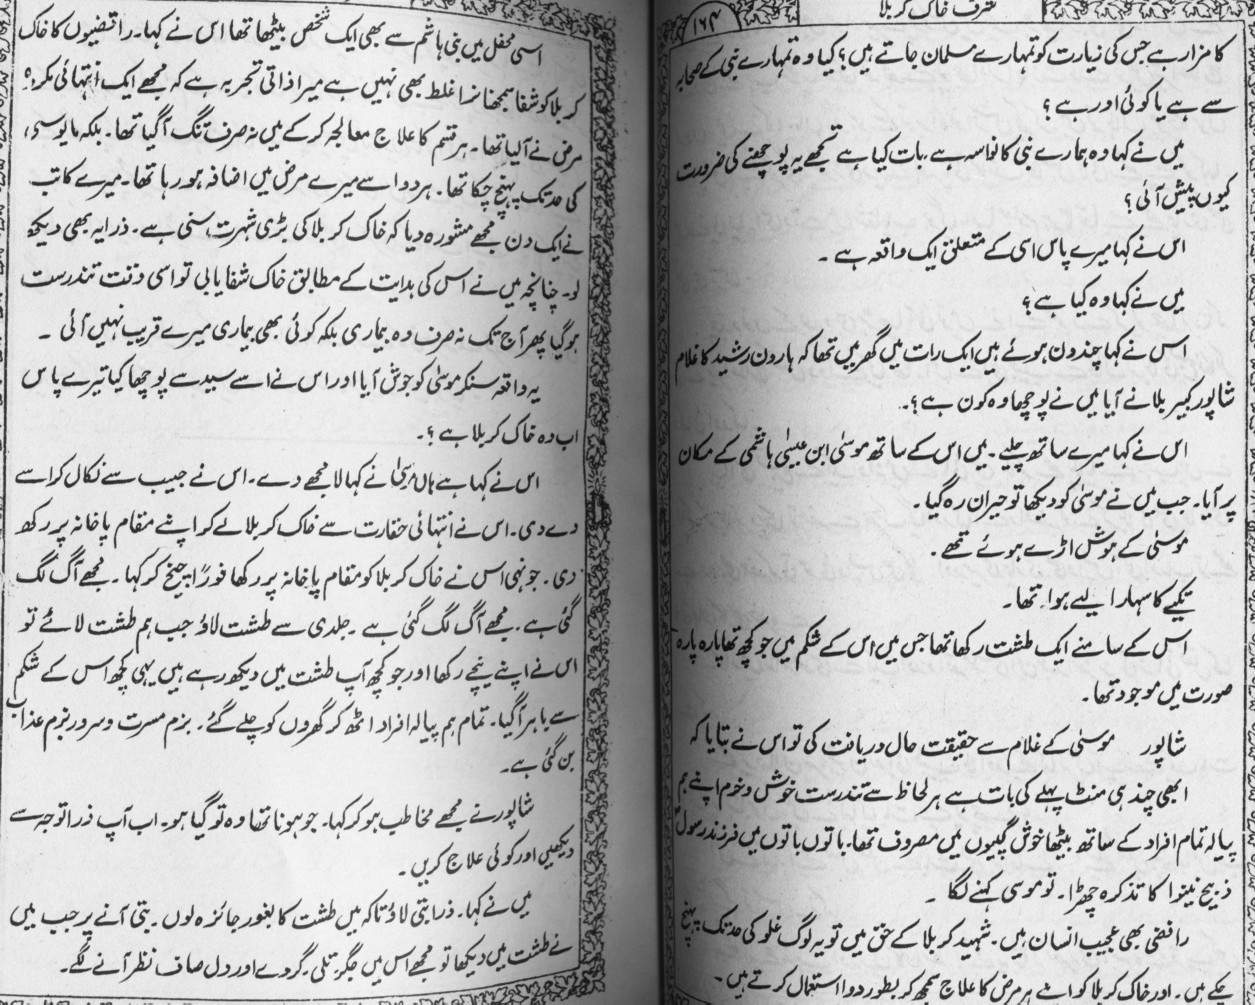 شرف خاک کربلا
۱۶۴
کا مزار ہے جس کی زیارت کو تمہارے مسلمان جاتے ہیں؟ کیا وہ تمہارے نبی کے صحابہ
سے ہے یا کوئی اور ہے؟
میں نے کہا وہ ہمارے نبی کا نواسہ ہے، بات کیا ہے تجھے یہ پوچھنے کی ضرورت
کیوں پیش آئی؟
اس نے کہا میرے پاس اسی کے متعلق ایک واقعہ ہے۔
میں نے کہا وہ کیا ہے؟
اس نے کہا چند دن ہوئے ہیں ایک رات میں گھر میں تھا کہ ہارون رشید کا غلام
شاپور کبیر بلانے آیا میں نے پوچھا وہ کون ہے؟۔
اس نے کہا میرے ساتھ چلیے۔ میں اس کے ساتھ موسیٰ ابن عیسیٰ ہاشمی کے مکان
پر آیا۔ جب میں نے موسیٰ کو دیکھا تو حیران رہ گیا۔
موسیٰ کے ہوش اڑے ہوئے تھے۔
تکیے کا سہارا لیے ہوا تھا۔
اس کے سامنے ایک طشت رکھا تھا جس میں اس کے شکم میں جو کچھ تھا پارہ پارہ
صورت میں موجود تھا۔
شاپور موسیٰ کے غلام سے حقیقت حال دریافت کی تو اس نے بتایا کہ
ابھی چند ہی منٹ پہلے کی بات ہے ہر لحاظ سے تندرست خوش و خرم اپنے ہم
پیالہ تمام افراد کے ساتھ بیٹھا خوش گپیوں میں مصروف تھا۔ باتوں باتوں میں فرزند رسولؐ
ذبیح نینوا کا تذکرہ چھڑا۔ تو موسی کہنے لگا۔
رافضی بھی عجیب انسان ہیں۔ شہید کربلا کے حق میں تو یہ لوگ غلو کی حد تک پہنچ
چکے ہیں۔ اور خاک کربلا کو اپنے ہر مرض کا علاج سمجھ کر بطور دوا استعمال کرتے ہیں۔
اسی محفل میں بنی ہاشم سے بھی ایک شخص بیٹھا تھا اس نے کہا۔ رافضیوں کا خاک
کربلا کو شفا سمجھنا غلط بھی نہیں ہے میرا ذاتی تجربہ ہے کہ مجھے ایک انتہائی مکروہ
مرض نے آ لیا تھا۔ ہر قسم کا علاج معالجہ کر کے میں نہ صرف تنگ آ گیا تھا۔ بلکہ مایوسی
کی حد تک پہنچ چکا تھا۔ ہر دوا سے میرے مرض میں اضافہ ہو رہا تھا۔ میرے کاتب
نے ایک دن مجھے مشورہ دیا کہ خاک کربلا کی بڑی شہرت سنی ہے۔ ذرا یہ بھی دیکھ
لو۔ چنانچہ میں نے اس کی ہدایت کے مطابق خاک شفا پا لی تو اسی وقت تندرست
ہو گیا پھر آج تک نہ صرف وہ بیماری بلکہ کوئی بھی بیماری میرے قریب نہیں آئی۔
یہ واقعہ سنکر موسیٰ کو جوش آیا اور اس نے اسے سید سے پوچھا کیا تیرے پاس
اب وہ خاک کربلا ہے؟۔
اس نے کہا ہے ہاں موسیٰ نے کہا لا مجھے دے۔ اس نے جیب سے نکال کر اسے
دے دی۔ اس نے انتہائی حقارت سے خاک کربلا لے کو اپنے مقام پاخانہ پر رکھ
دی۔ جونہی اس نے خاک کربلا کو مقام پاخانہ پر رکھا فوراً چیخ کر کہا۔ مجھے آگ لگ
گئی ہے۔ مجھے آگ لگ گئی ہے۔ جلدی سے طشت لاؤ جب ہم طشت لائے تو
اس نے اپنے نیچے رکھا اور جو کچھ آپ طشت میں دیکھ رہے ہیں یہی کچھ اس کے شکم
سے باہر آ گیا۔ تمام ہم پیالہ افراد اٹھ کر گھروں کو چلے گئے۔ بزم مسرت و سرور بزم عذاب
بن گئی ہے۔
شاپور نے مجھے مخاطب ہو کر کہا۔ جو ہونا تھا وہ تو گیا ہو۔ اب آپ ذرا توجہ سے
دیکھیں اور کوئی علاج کریں۔
میں نے کہا۔ ذرا بتی لاؤ تاکہ میں طشت کا بغور جائزہ لوں۔ بتی آنے پر جب میں
نے طشت میں دیکھا تو مجھے اس میں جگر، تلی۔ گردے اور دل صاف نظر آنے لگے۔